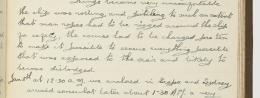 things became very uncomfortable
the ship was rolling and pitching to such an extent
that man ropes had to be rigged around the ship
for safety, the course had to be changed often
to make it possible to secure everything possible
that was exposed to the air and likely to
become dislodged.
at 12.30 a.m. we anchored in
around somewhat later about 1.30 A.M. a very